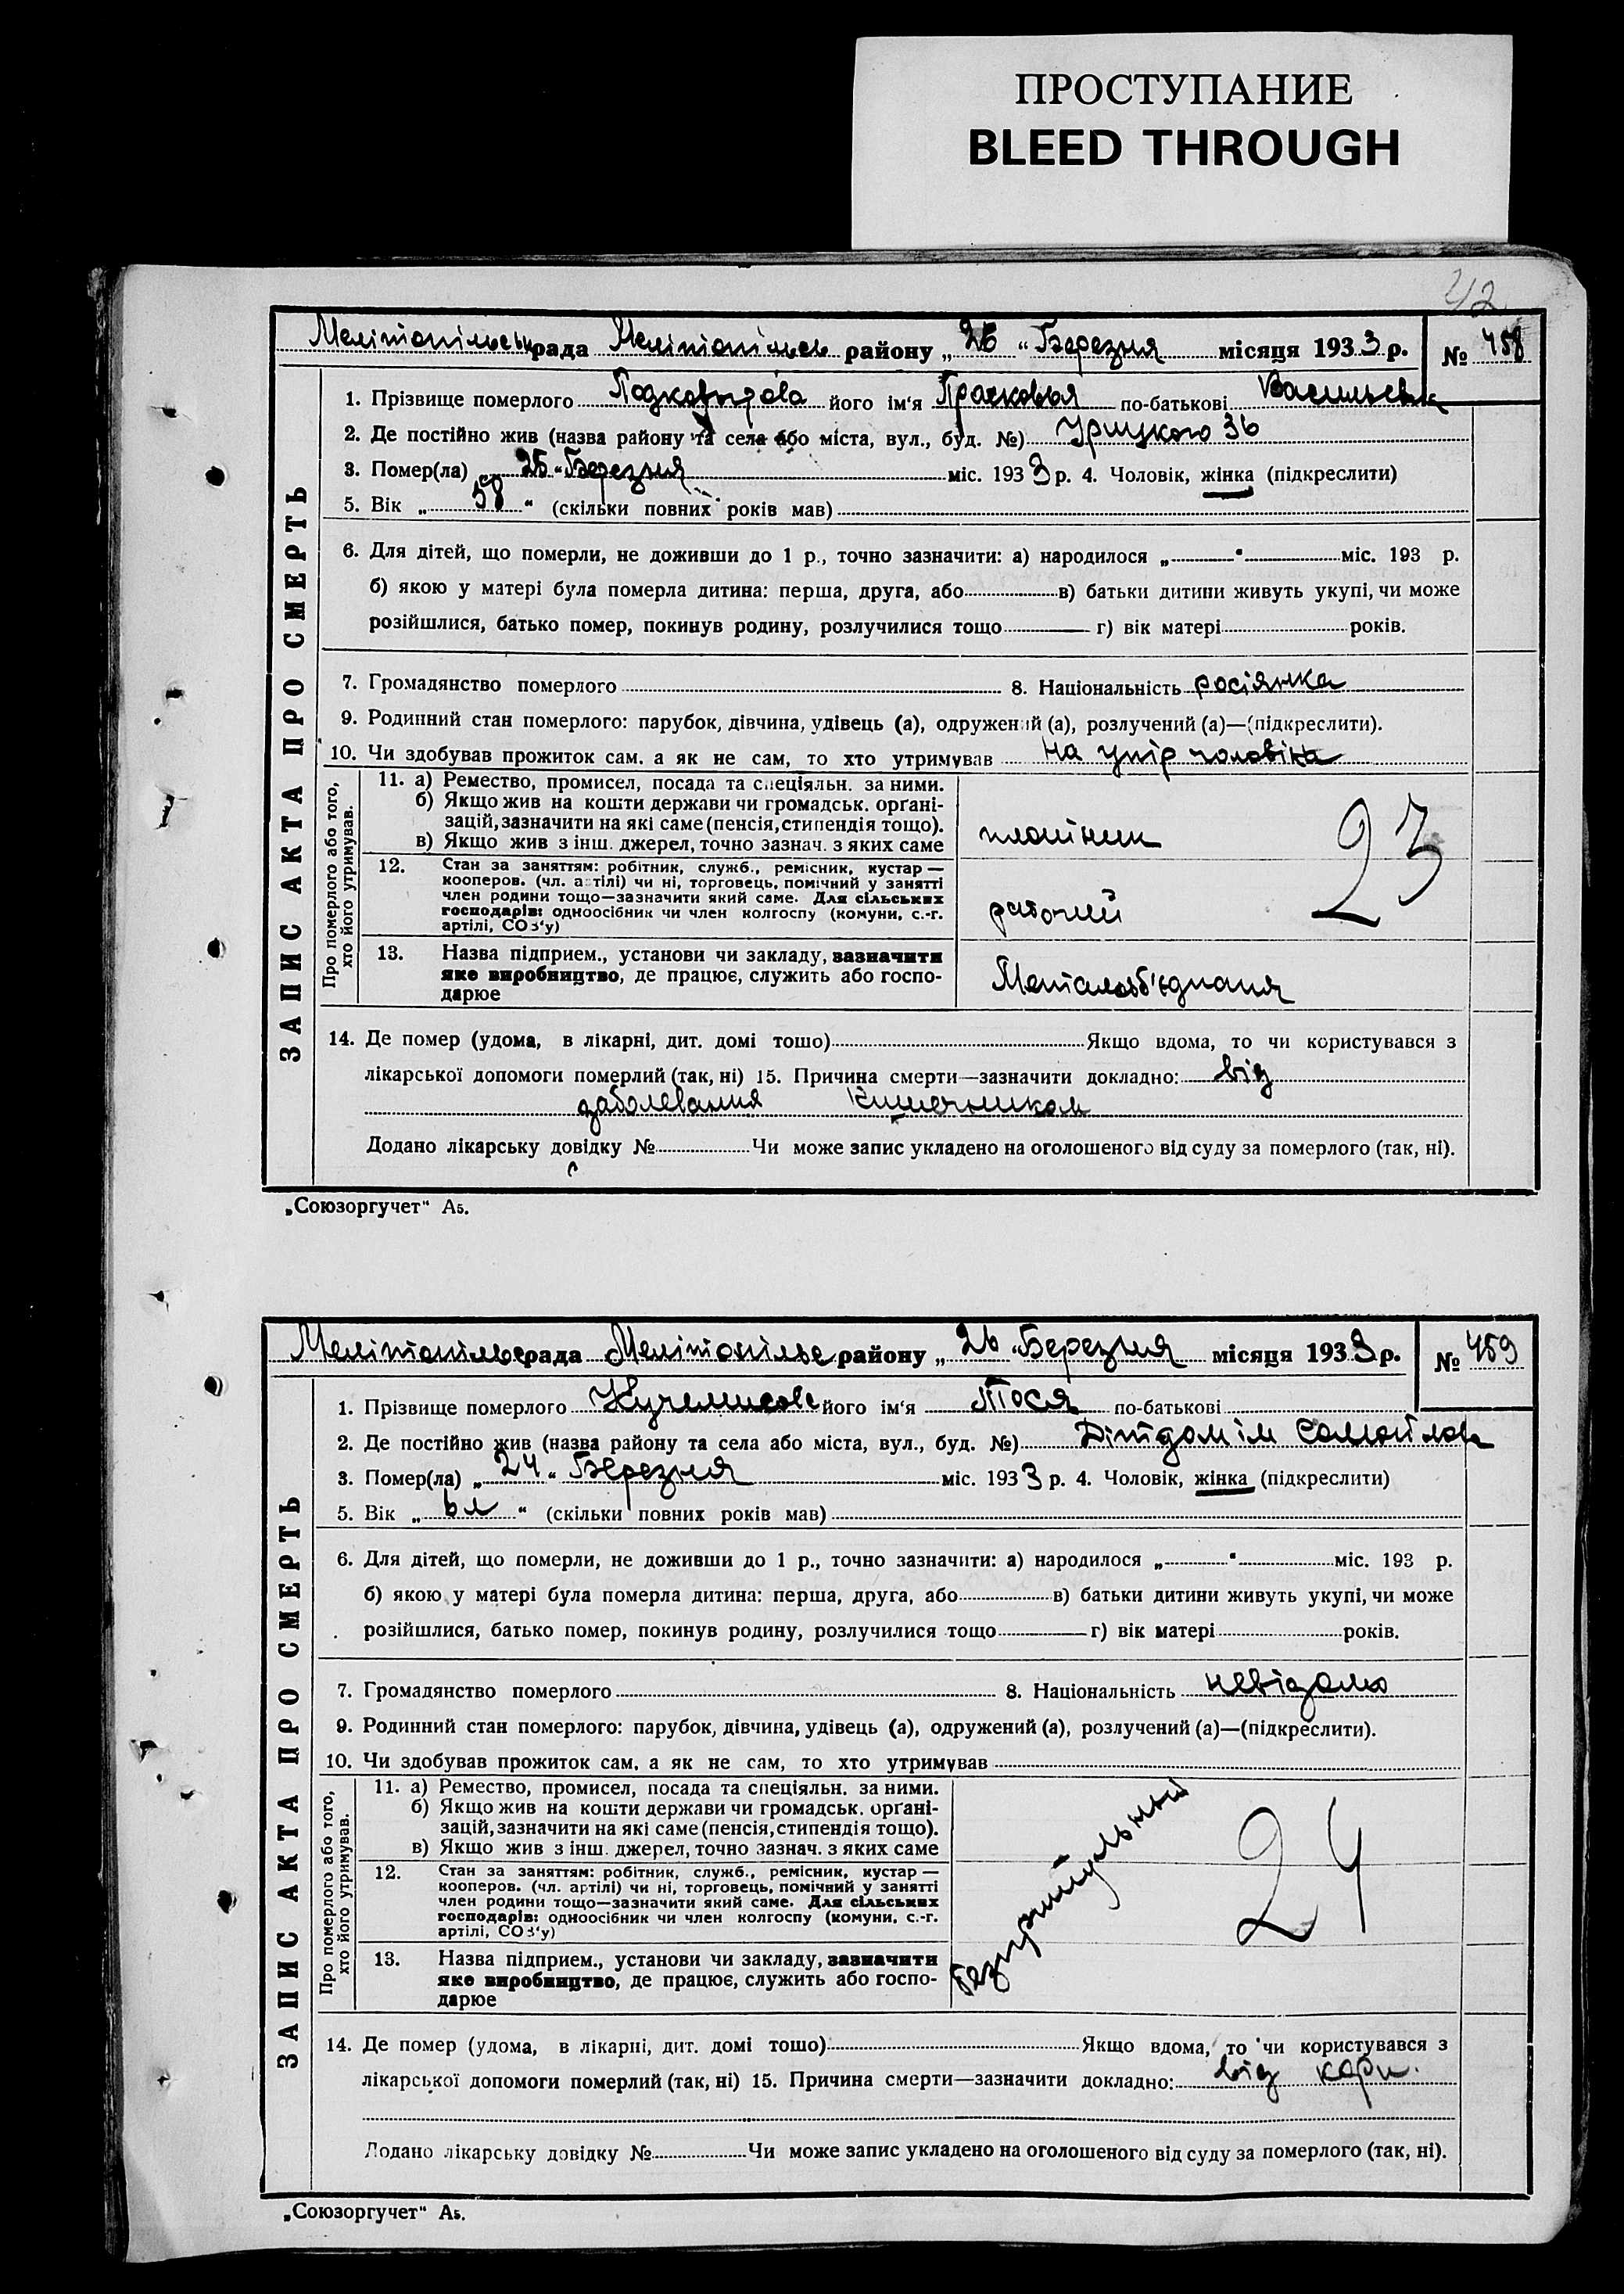 ПРОСТУПАНИЕ
BLEED THROUGH
42
Мелітопільськ рада Мелітопільськ району „26“ Березня місяця 1933 р. № 458
ЗАПИС АКТА ПРО СМЕРТЬ
1. Прізвище померлого його ім'я Прасковья по-батькові Васильевн
2. Де постійно жив (назва району та села або міста, вул., буд. №) Урицкого 36
3. Помер(ла) „25“ Березня міс. 1933 р. 4. Чоловік, жінка (підкреслити)
5. Вік „58“ (скільки повних років мав)
6. Для дітей, що померли, не доживши до 1 р., точно зазначити: а) народилося „ “ міс. 193 р.
б) якою у матері була померла дитина: перша, друга, або в) батьки дитини живуть укупі, чи може
розійшлися, батько помер, покинув родину, розлучилися тощо г) вік матері років.
7. Громадянство померлого 8. Національність росіянка
9. Родинний стан померлого: парубок, дівчина, удівець (а), одружений (а), розлучений (а)—(підкреслити).
10. Чи здобував прожиток сам, а як не сам, то хто утримував на упір чоловіка
Про померлого або того, хто його утримував.
11. а) Ремество, промисел, посада та спеціяльн. за ними.
б) Якщо жив на кошти держави чи громадськ. орґані-
зацій, зазначити на які саме (пенсія, стипендія тощо).
в) Якщо жив з інш. джерел, точно зазнач. з яких саме
плотнік
23
12. Стан за заняттям: робітник, служб., ремісник, кустар —
кооперов. (чл. артілі) чи ні, торговець, помічний у занятті
член родини тощо—зазначити який саме. Для сільських
господарів: одноосібник чи член колгоспу (комуни, с.-г.
артілі, СОЗ'у)
рабочий
13. Назва підприєм., установи чи закладу, зазначити
яке виробництво, де працює, служить або госпо-
дарює
Металооб'єднаня
14. Де помер (удома, в лікарні, дит. домі тощо) Якщо вдома, то чи користувався з
лікарської допомоги померлий (так, ні) 15. Причина смерти—зазначити докладно: від
заболевания кишечником
Додано лікарську довідку № Чи може запис укладено на оголошеного від суду за померлого (так, ні).
„Союзоргучет“ А5.
Мелітопільс рада Мелітопільс району „26“ Березня місяця 1933 р. № 459
ЗАПИС АКТА ПРО СМЕРТЬ
1. Прізвище померлого його ім'я Тося по-батькові
2. Де постійно жив (назва району та села або міста, вул., буд. №) Дітдом ім Самойлов
3. Помер(ла) „24“ Березня міс. 1933 р. 4. Чоловік, жінка (підкреслити)
5. Вік „6 л“ (скільки повних років мав)
6. Для дітей, що померли, не доживши до 1 р., точно зазначити: а) народилося „ “ міс. 193 р.
б) якою у матері була померла дитина: перша, друга, або в) батьки дитини живуть укупі, чи може
розійшлися, батько помер, покинув родину, розлучилися тощо г) вік матері років.
7. Громадянство померлого 8. Національність невідомо
9. Родинний стан померлого: парубок, дівчина, удівець (а), одружений (а), розлучений (а)—(підкреслити).
10. Чи здобував прожиток сам, а як не сам, то хто утримував
Про померлого або того, хто його утримував.
11. а) Ремество, промисел, посада та спеціяльн. за ними.
б) Якщо жив на кошти держави чи громадськ. орґані-
зацій, зазначити на які саме (пенсія, стипендія тощо).
в) Якщо жив з інш. джерел, точно зазнач. з яких саме
безпритульный
24
12. Стан за заняттям: робітник, служб., ремісник, кустар —
кооперов. (чл. артілі) чи ні, торговець, помічний у занятті
член родини тощо—зазначити який саме. Для сільських
господарів: одноосібник чи член колгоспу (комуни, с.-г.
артілі, СОЗ'у)
13. Назва підприєм., установи чи закладу, зазначити
яке виробництво, де працює, служить або госпо-
дарює
14. Де помер (удома, в лікарні, дит. домі тощо) Якщо вдома, то чи користувався з
лікарської допомоги померлий (так, ні) 15. Причина смерти—зазначити докладно: від кори.
Додано лікарську довідку № Чи може запис укладено на оголошеного від суду за померлого (так, ні).
„Союзоргучет“ А5.